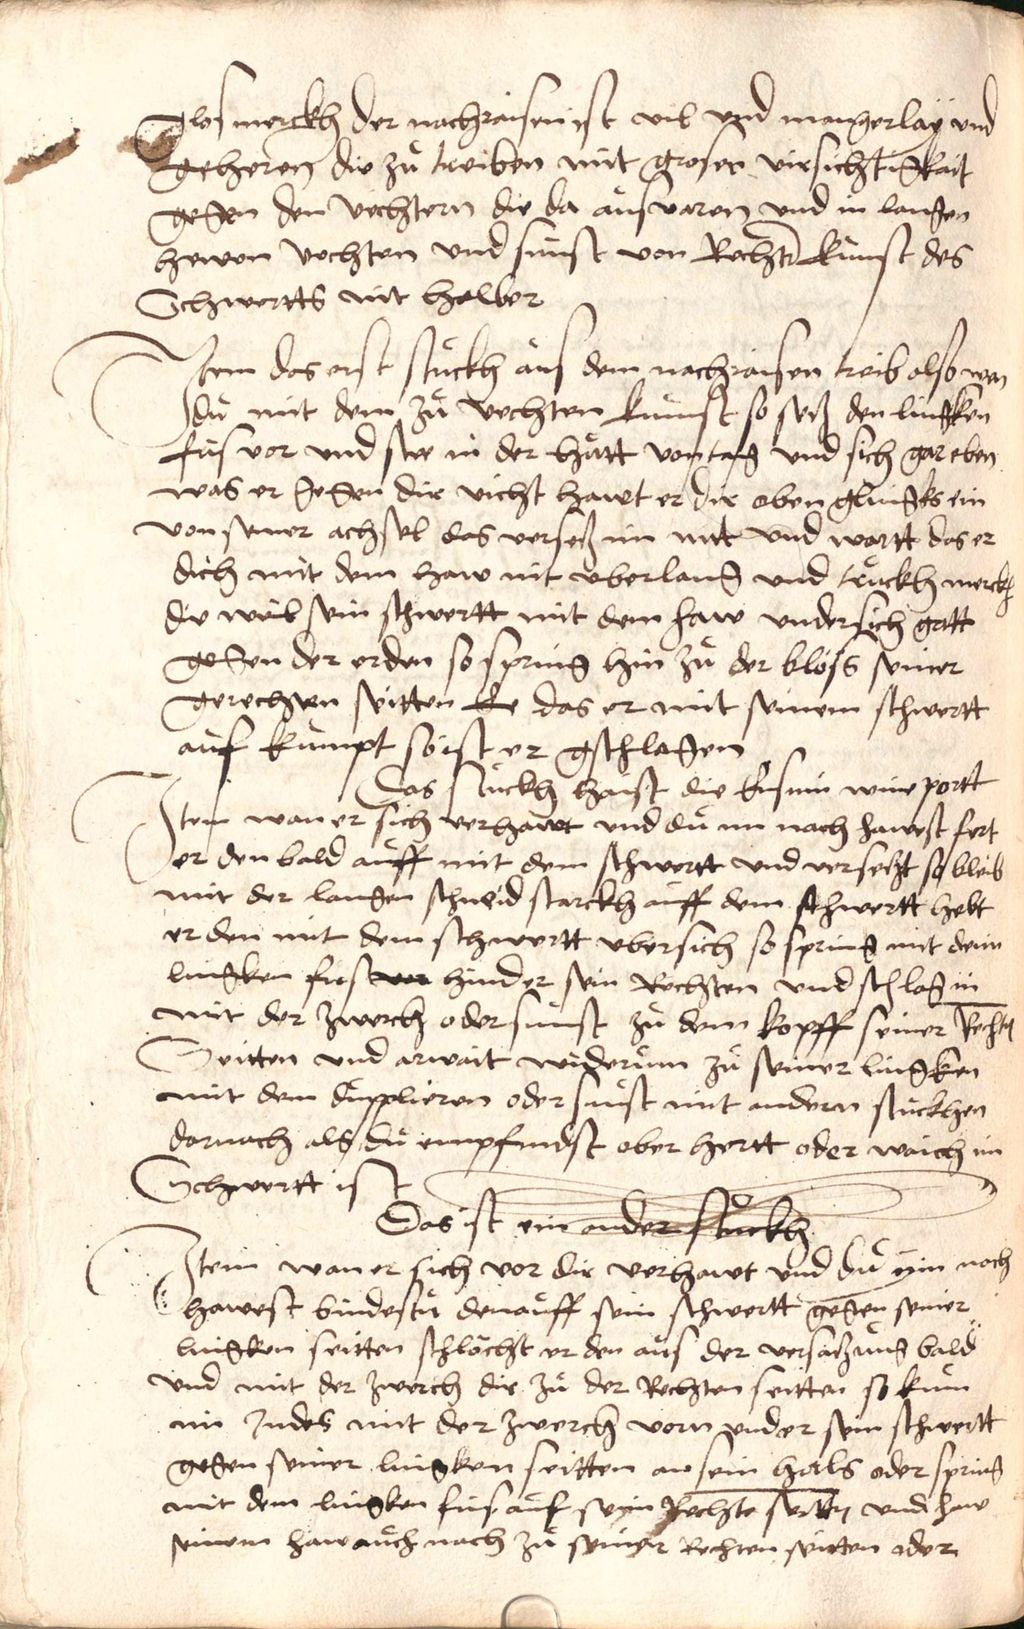 Glos merckh der nachraisen ist vil vnd mangerlay vnd
geheren die zů treiben mit grosen virsichtigkait
gegen den vechtern die da aůsvaren vnd in langen
hewen vechten vnd sůnst von Rechter kůnst des
Schwertts nit halber
Item das erst stůckh aůs dem nachraisen treib also wen
dů mit dem zů vechten kůmst so secz den lingken
fůs vor vnd stee in der hůtt vom tag vnd sich gar eben
was er gegen dir vicht hawt er dir oben glingks ein
von seiner achsel das versecz im nitt vnd wartt das er
dich mit dem haw nit vberlang vnd trůckh merckh
die weil sein schwertt mit dem haw vndersich gatt
gegen der erden so spring hin zů der blöss seiner
gerechten seitten ee das er mit seinem schwertt
aůf kůmpt so ist er gschlagen
Das stůckh haist die eysnin
Item wan er sich verhawt vnd dů im nach hawest fert
er den bald aůff mit dem schwertt vnd versetzt so bleib
mit der langen schneid starckh aůff dem schwertt hebt
er den mit dem schwertt vbersich so spring mit dein
lingken fůs vor hinder sein Rechten vnd schlag in
mit der zwerch oder sůnst zů dem kopff seiner Rechten
Seitten vnd arwait widerům zů seiner lingken
mit dem dupplieren oder sůnst mit andern stůckhen
darnach als dů empfindst ober hertt oder waich im
Schwertt ist
Das ist ein ander stůckh
Item wan er sich vor dir verhawt vnd dů ym nach
hawest bindestů den aůff sein schwertt gegen seiner
lingken seitten schlöcht er den aůs der versatzůng bald
vnd mit der zwerch dir zů der Rechten seitten so kům
im Indes mit der zwerch vorn vnder sein schwertt
gegen seiner lingken seitten an sein hals oder spring
mit dem lingken fůs aůf seyn Rechte seitten vnd haw
seinem haw aůch nach zů seiner Rechten seitten oder